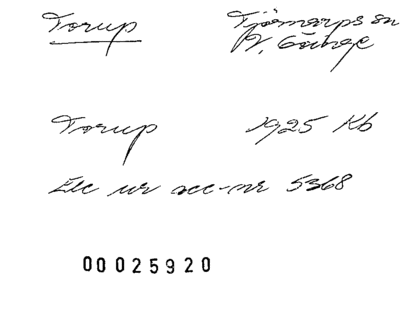 Torup Tjörnarps sn
V. Göinge
Torup 1925 Kb
Exc ur acc-nr 5368
00025920